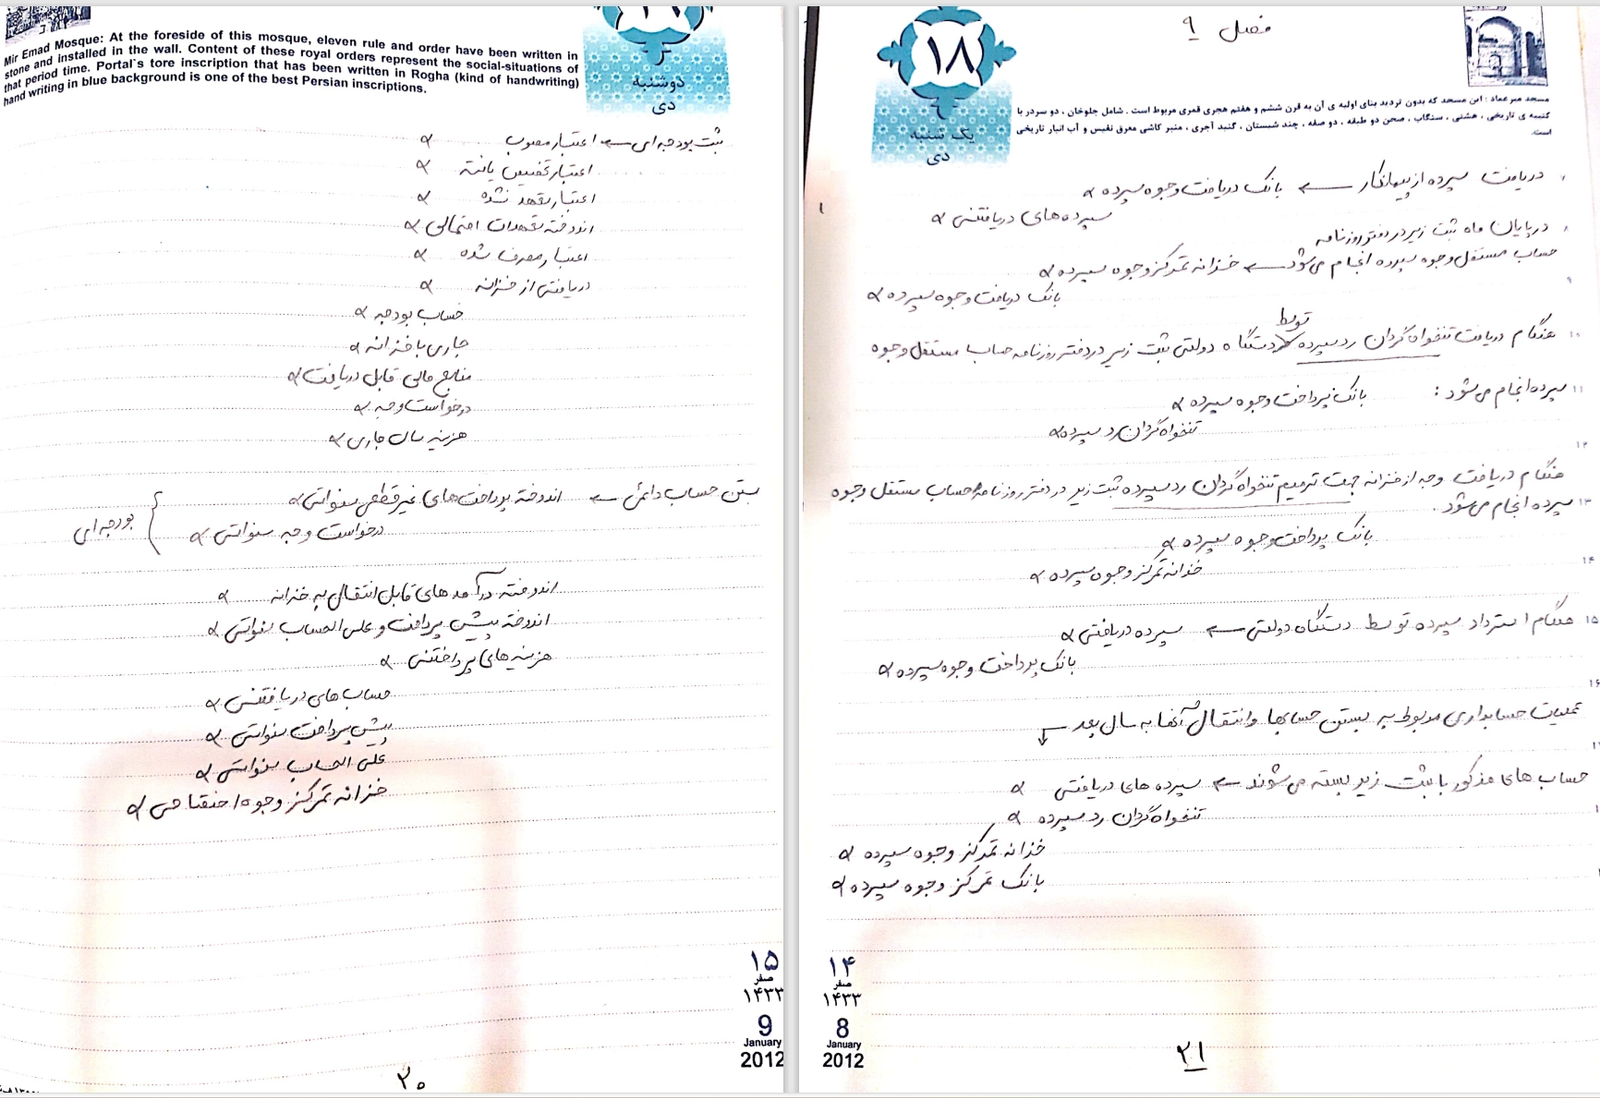 Mir Emad Mosque: At the foreside of this mosque, eleven rule and order have been written in
stone and installed in the wall. Content of these royal orders represent the social-situations of
that period time. Portal`s tore inscription that has been written in Rogha (kind of handwriting)
hand writing in blue background is one of the best Persian inscriptions.
دوشنبه
دی
ثبت بودجه ای ← اعتبار مصوب ×
اعتبار تخصیص یافته ×
اعتبار تعهد نشده ×
اندوخته تعهدات احتمالی ×
اعتبار مصرف شده ×
دریافتی از خزانه ×
حساب بودجه ×
جاری با خزانه ×
منابع مالی قابل دریافت ×
درخواست وجه ×
هزینه سال جاری ×
بستن حساب دائمی ← اندوخته پرداخت های غیر قطعی سنواتی ×
درخواست وجه سنواتی × } بودجه ای
اندوخته درآمد های قابل انتقال به خزانه ×
اندوخته پیش پرداخت و علی الحساب سنواتی ×
هزینه های پرداختنی ×
حساب های دریافتنی ×
پیش پرداخت سنواتی ×
علی الحساب سنواتی ×
خزانه تمرکز وجوه اختتامی ×
۱۵
صفر
۱۴۳۳
9
January
2012
۲۰
فصل ۹
۱۸
یک شنبه
دی
مسجد میر عماد : این مسجد که بدون تردید بنای اولیه ی آن به قرن ششم و هفتم هجری قمری مربوط است . شامل جلوخان ، دو سردر با
کتیبه ی تاریخی ، هشتی ، سنگاب ، صحن دو طبقه ، دو صفه ، چند شبستان ، گنبد آجری ، منبر کاشی معرق نفیس و آب انبار تاریخی
است.
دریافت سپرده از پیمانکار ← بانک دریافت وجوه سپرده ×
سپرده های دریافتنی ×
در پایان ماه ثبت زیر در دفتر روزنامه
حساب مستقل وجوه سپرده انجام می شود ← خزانه تمرکز وجوه سپرده ×
بانک دریافت وجوه سپرده ×
هنگام دریافت تنخواه گردان رد سپرده توسط دستگاه دولتی ثبت زیر در دفتر روزنامه حساب مستقل وجوه
سپرده انجام می شود : بانک پرداخت وجوه سپرده ×
تنخواه گردان رد سپرده ×
هنگام دریافت وجه از خزانه جهت ترمیم تنخواه گردان رد سپرده ثبت زیر در دفتر روزنامه حساب مستقل وجوه
سپرده انجام می شود .
بانک پرداخت وجوه سپرده ×
خزانه تمرکز وجوه سپرده ×
هنگام استرداد سپرده توسط دستگاه دولتی ← سپرده دریافتی ×
بانک پرداخت وجوه سپرده ×
عملیات حسابداری مربوط به بستن حسابها و انتقال آنها به سال بعد
حساب های مذکور با ثبت زیر بسته می شوند ← سپرده های دریافتی ×
تنخواه گردان رد سپرده ×
خزانه تمرکز وجوه سپرده ×
بانک تمرکز وجوه سپرده ×
۱۴
صفر
۱۴۳۳
8
January
2012
۲۱